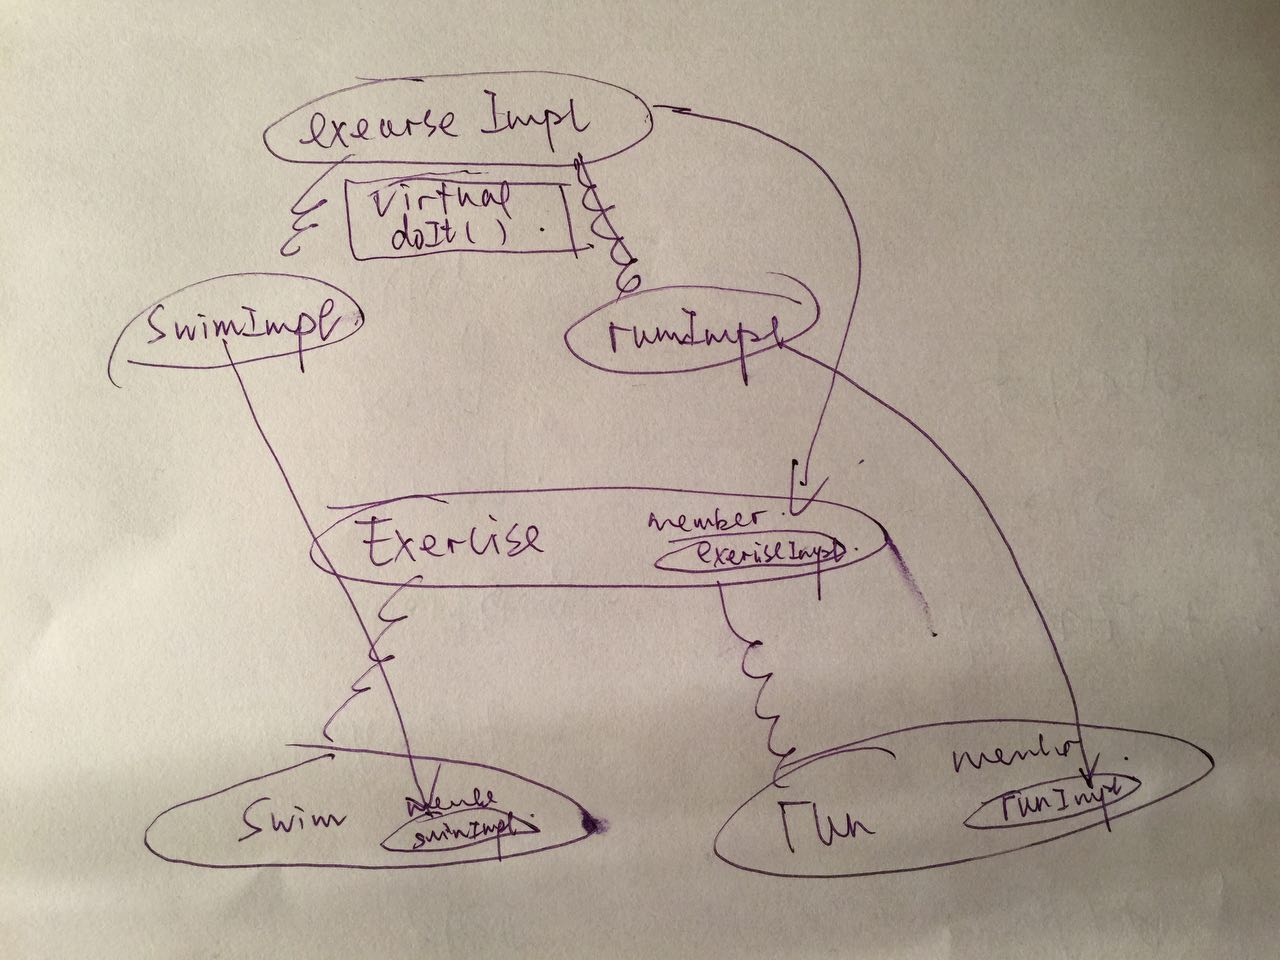 exearse Impl
Virtual
doIt( )
SwimImpl
runImpl
Exercise
member
exeriseImpl
Swim
swimImpl
run
member
runImpl